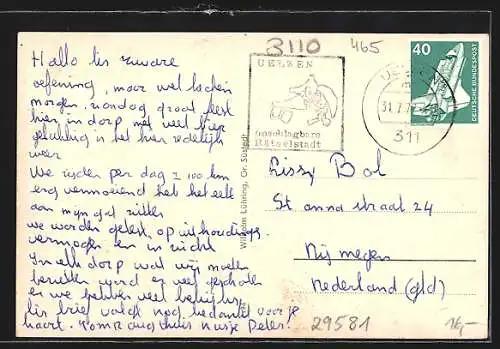 3110
465
40
DEUTSCHE BUNDESPOST
UELZEN
unschlagbare
Rätselstadt
31.7.7
311
Hallo
zware
oefening, maar wel lachen
morgen, zondag groot feest
hier in dorp met veel bier
gelukkig is het hier redelijk
weer
We rijden per dag ± 100 km
erg vermoeiend heb het eelt
aan mijn gat zitten
we worden getest op uithoudings
vermogen en in zicht
In elk dorp wat wij moeten
bereiken word er veel geschoten
en we hebben veel bekijks
brief volgt nog bedankt voor je
kaart. Peter.
Wilhelm Lühring, Gr. Süstedt
Lissy Bol
St anna straat 24
Nijmegen
Nederland (gld)
29581
16,-